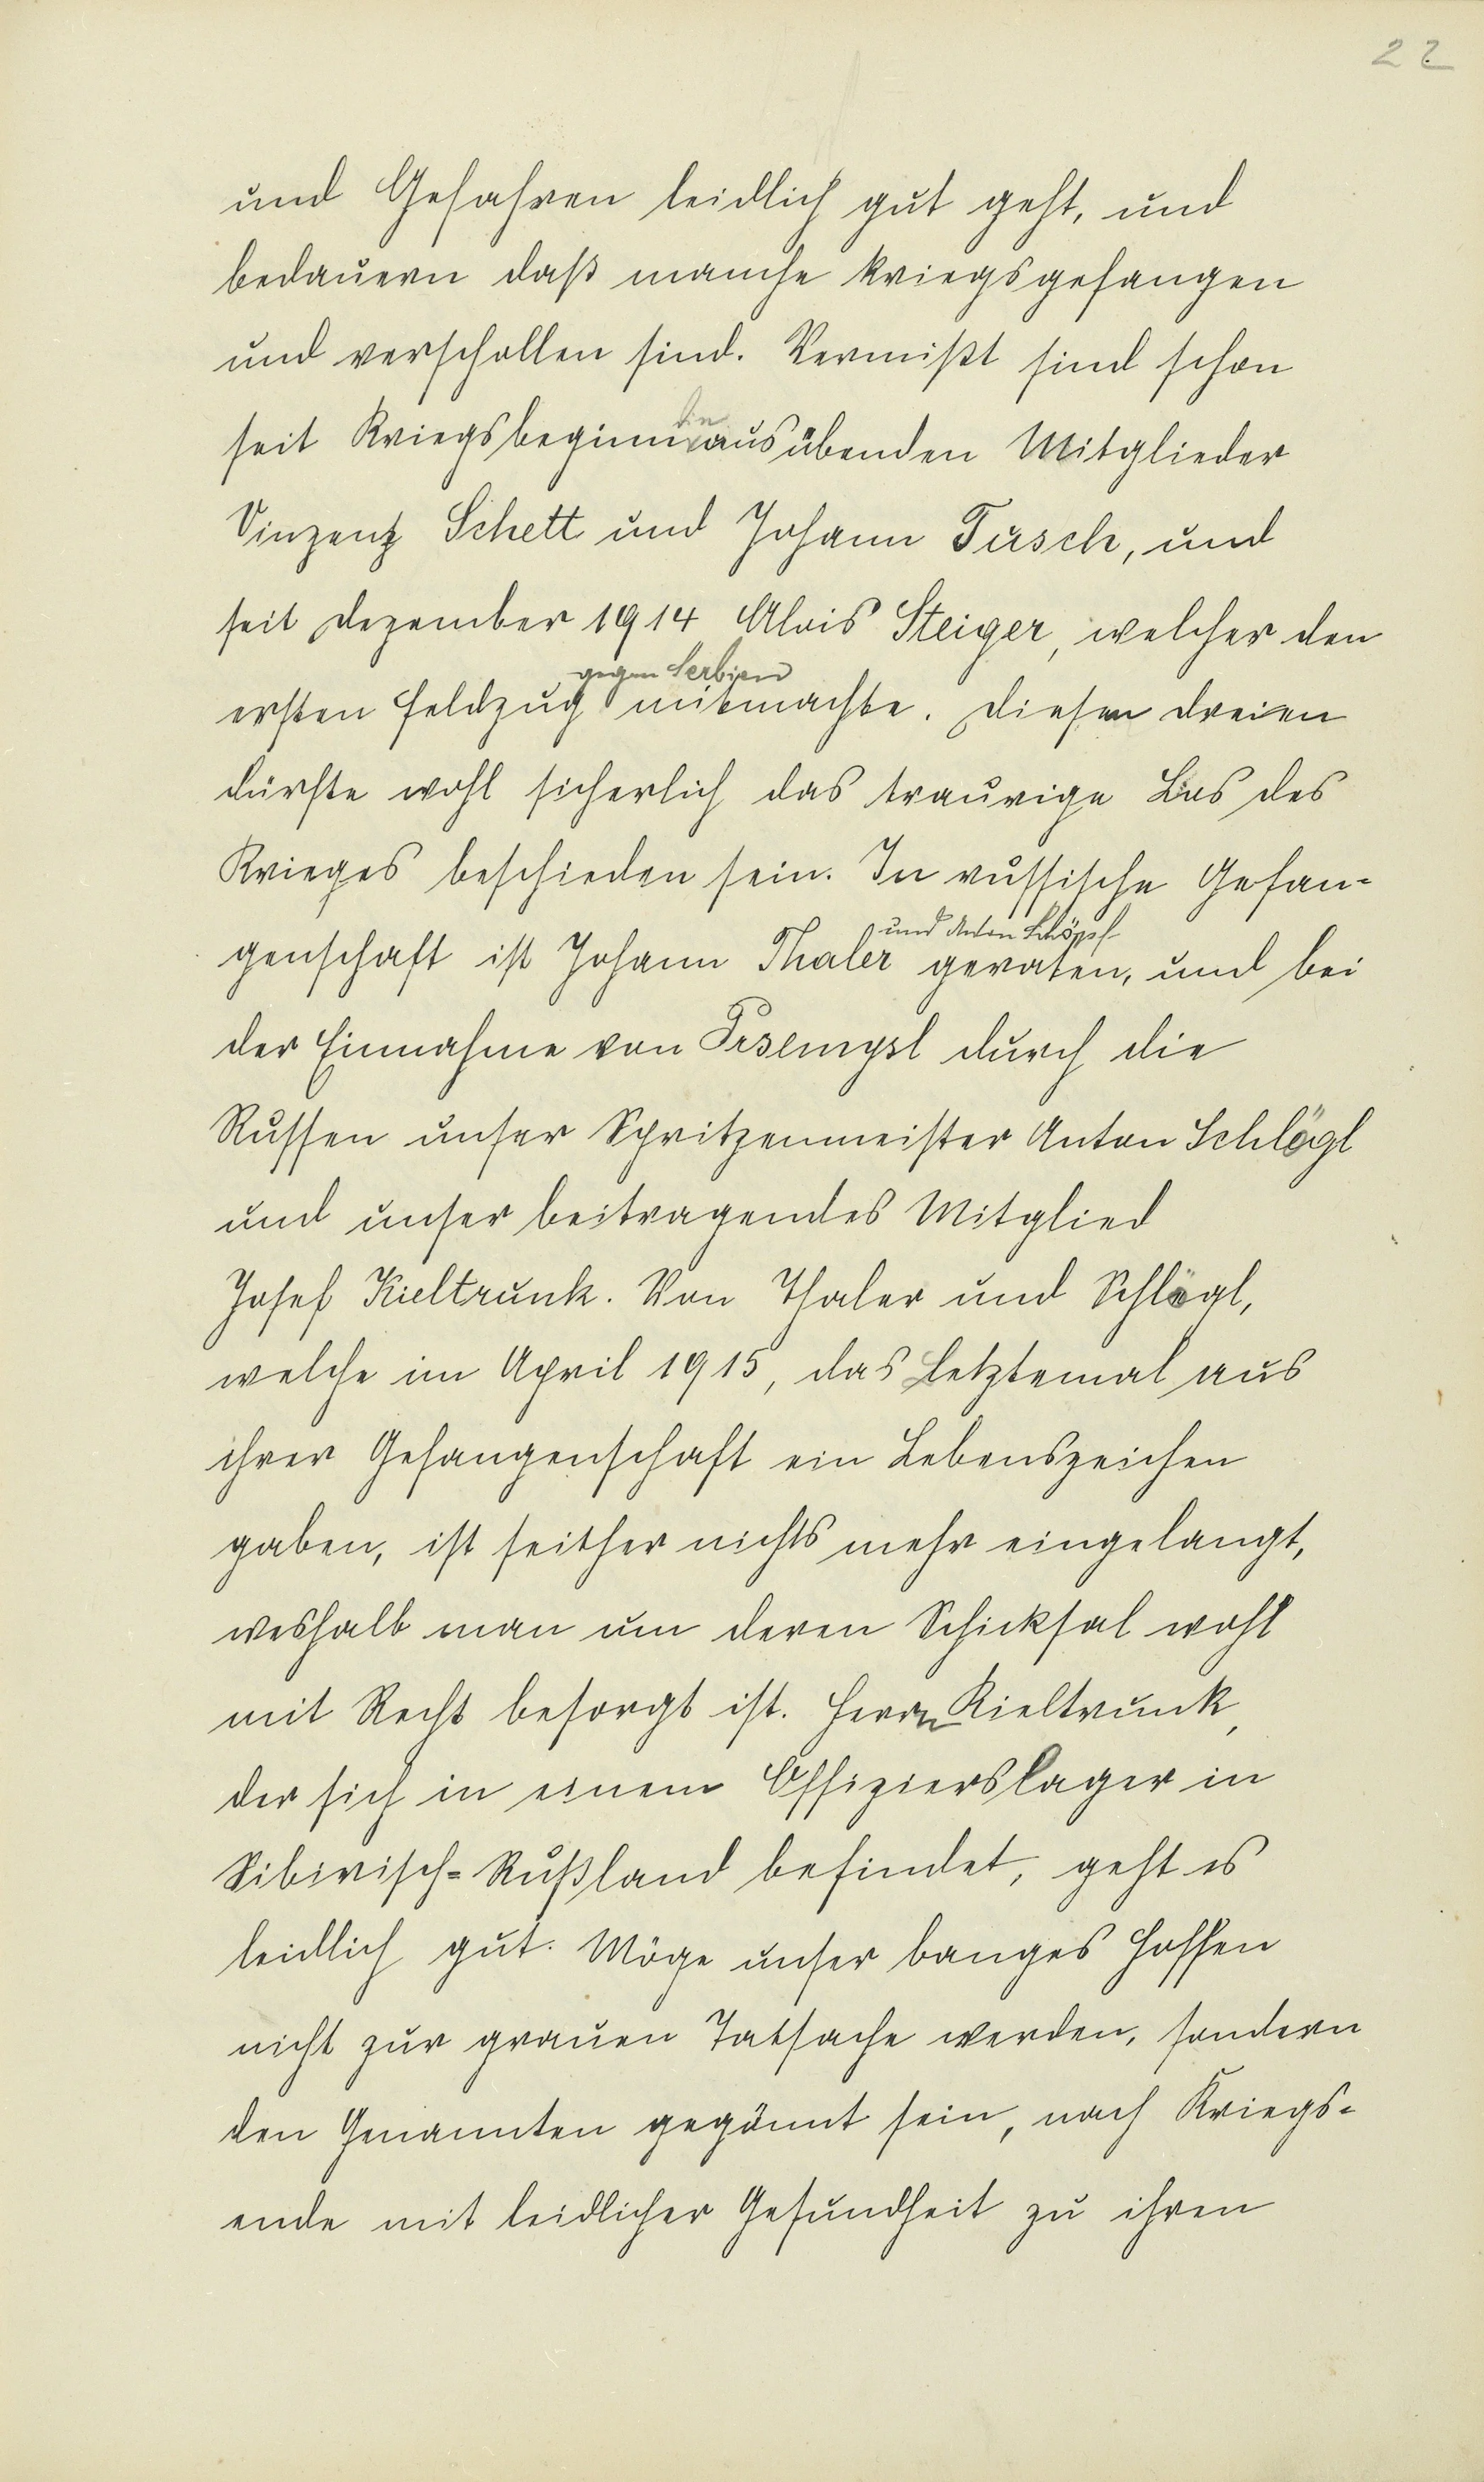 22
und Gefahren leidlich gut geht, und
bedauern daß manche kriegsgefangen
und verschollen sind. Vermißt sind schon
seit Kriegsbeginn die ausübenden Mitglieder
Vinzenz Schett und Johann Tusch, und
seit Dezember 1914 Alois Steiger, welcher den
gegen Serbien
ersten Feldzug mitmachte. Diesen dreien
dürfte wohl sicherlich das traurige Los des
Krieges beschieden sein. In russische Gefan-
und Anton Schöpf
genschaft ist Johann Thaler geraten, und bei
der Einnahme von Prsemysl durch die
Russen unser Spritzenmeister Anton Schlögl
und unser beitragendes Mitglied
Josef Kieltrunk. Von Thaler und Schlögl,
welche im April 1915, das letztemal aus
ihrer Gefangenschaft ein Lebenszeichen
gaben, ist seither nichts mehr eingelangt,
weshalb man um deren Schicksal wohl
mit Recht besorgt ist. Herrn Kieltrunk,
der sich in einem Offizierslager in
Sibirisch=Rußland befindet, geht es
leidlich gut. Möge unser banges Hoffen
nicht zur grauen Tatsache werden, sondern
den Genannten gegönnt sein, nach Kriegs-
ende mit leidlicher Gesundheit zu ihren